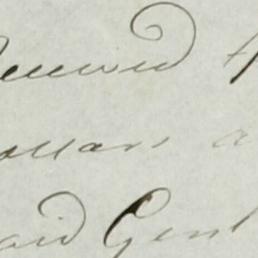 Received
Dollars a
said Gent